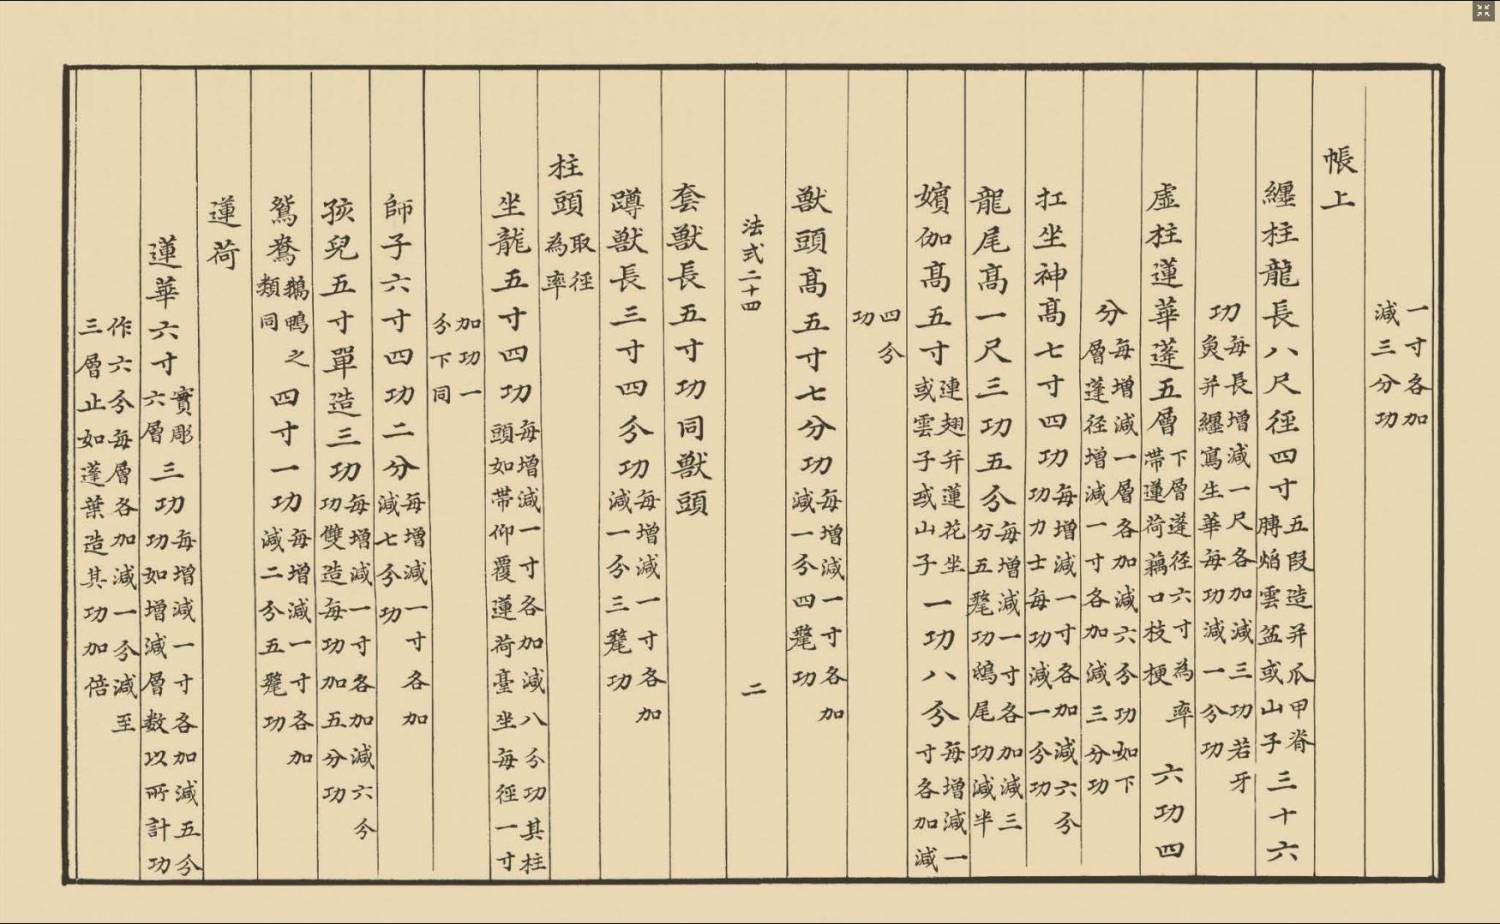 一寸各加減三分功
帳上
纏柱龍長八尺徑四寸五段造并爪甲脊膊焰雲盆或山子三十六
功每長增減一尺各加減三功若牙魚并纏寫生華每功減一分功
虛柱蓮華蓬五層下層蓬徑六寸為率帶蓮荷藕口枝梗六功四
分每增減一層各加減六分功如下層蓬徑增減一寸各加減三分功
扛坐神高七寸四功每增減一寸各加減六分功力士每功減一分功
龍尾高一尺三功五分每增減一寸各加減三分五氂功鴟尾功減半
嬪伽高五寸連翅并蓮花坐或雲子或山子一功八分每增減一寸各加減
四分功
獸頭高五寸七分功每增減一寸各加減一分四氂功
法式二十四 二
套獸長五寸功同獸頭
蹲獸長三寸四分功每增減一寸各加減一分三氂功
柱頭取徑為率
坐龍五寸四功每增減一寸各加減八分功其柱頭如帶仰覆蓮荷臺坐每徑一寸
加功一分下同
師子六寸四功二分每增減一寸各加減七分功
孩兒五寸單造三功每增減一寸各加減六分功雙造每功加五分功
鴛鴦鵝鴨之類同四寸一功每增減一寸各加減二分五氂功
蓮荷
蓮華六寸實彫六層三功每增減一寸各加減五分功如增減層數以所計功
作六分每層各加減一分減至三層止如蓬葉造其功加倍